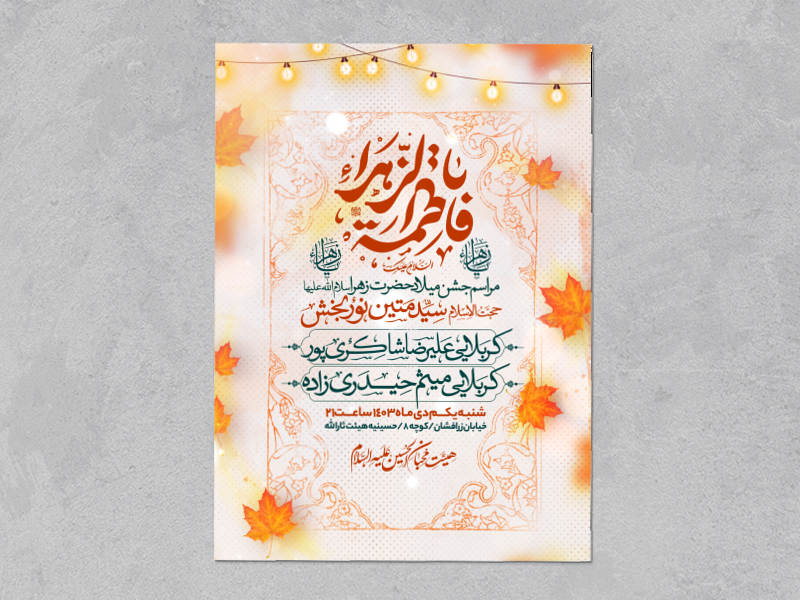 یا فاطمة الزهراء
السلام علیک
یا زهرا
یا زهرا
مراسم جشن میلاد حضرت زهرا سلام الله علیها
حجت الاسلام سید متین نوربخش
کربلایی علیرضا شاکری پور
کربلایی میثم حیدری زاده
شنبه یکم دی ماه ۱۴۰۳ ساعت ۲۱
خیابان زرافشان / کوچه ۸ / حسینیه هیئت ثارالله
هیئت محبان الحسین علیه السلام